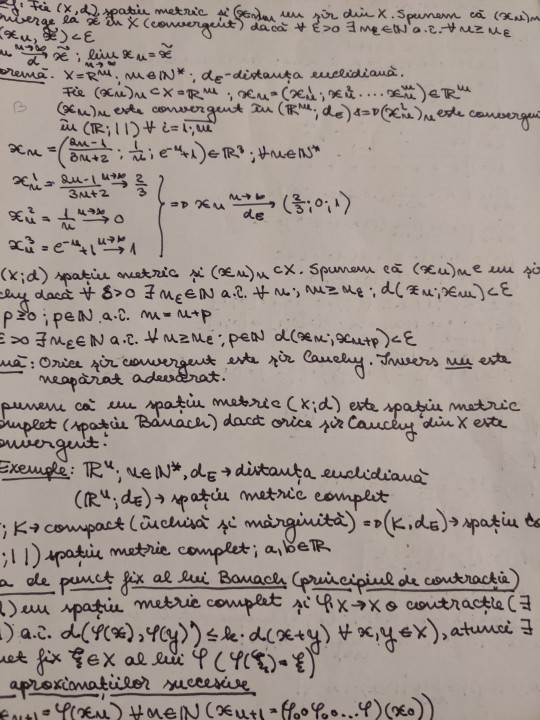 Fie (X,d) spațiu metric și (xn)n un șir din X. Spunem că (xn)n
converge la x̃ în X (convergent) dacă ∀ ε>0 ∃ nε∈ℕ a.î. ∀ n≥nε
(xn, x̃)<ε
n→∞ d x̃ ; lim n→∞ xn = x̃
oremă. X=ℝ^m, m∈ℕ*, dE-distanța euclidiană.
Fie (xn)n⊂X=ℝ^m ; xn=(xn^1, xn^2 ... xn^m)∈ℝ^m
(xn)n este convergent în (ℝ^m; dE) ⇔ (xn^i)n este convergent
în (ℝ;||) ∀ i=1,m
xn=((2n-1)/(3n+2) ; 1/n ; e^-n+1)∈ℝ^3 ; ∀n∈ℕ*
xn^1 = (2n-1)/(3n+2) n→∞→ 2/3
xn^2 = 1/n n→∞→ 0 ⇒ xn n→∞→ dE (2/3; 0; 1)
xn^3 = e^-n+1 n→∞→ 1
(X;d) spațiu metric și (xn)n⊂X. Spunem că (xn)n e un șir
chy dacă ∀ ε>0 ∃ nε∈ℕ a.î. ∀ n, m≥nε ; d(xn; xm)<ε
p≥0 ; p∈ℕ a.î. m=n+p
ε>0 ∃ nε∈ℕ a.î. ∀ n≥nε ; p∈ℕ d(xn; xn+p)<ε
mă: Orice șir convergent este șir Cauchy. Invers nu este
neapărat adevărat.
punem că un spațiu metric (X;d) este spațiu metric
omplet (spațiu Banach) dacă orice șir Cauchy din X este
onvergent.
Exemple: ℝ^n; n∈ℕ*, dE → distanța euclidiană
(ℝ^n; dE) → spațiu metric complet
; K→compact (închisă și mărginită) ⇒ (K, dE) → spațiu co
; ||) spațiu metric complet; a,b∈ℝ
a de punct fix al lui Banach (principiul de contracție)
) un spațiu metric complet și φ:X→X o contracție (∃
1) a.î. d(φ(x), φ(y)) ≤ k·d(x+y) ∀ x,y∈X), atunci ∃
nct fix ξ∈X al lui φ (φ(ξ)=ξ)
aproximațiilor succesive
xn+1 = φ(xn) ∀ n∈ℕ (xn+1 = (φ∘φ∘...φ)(x0))